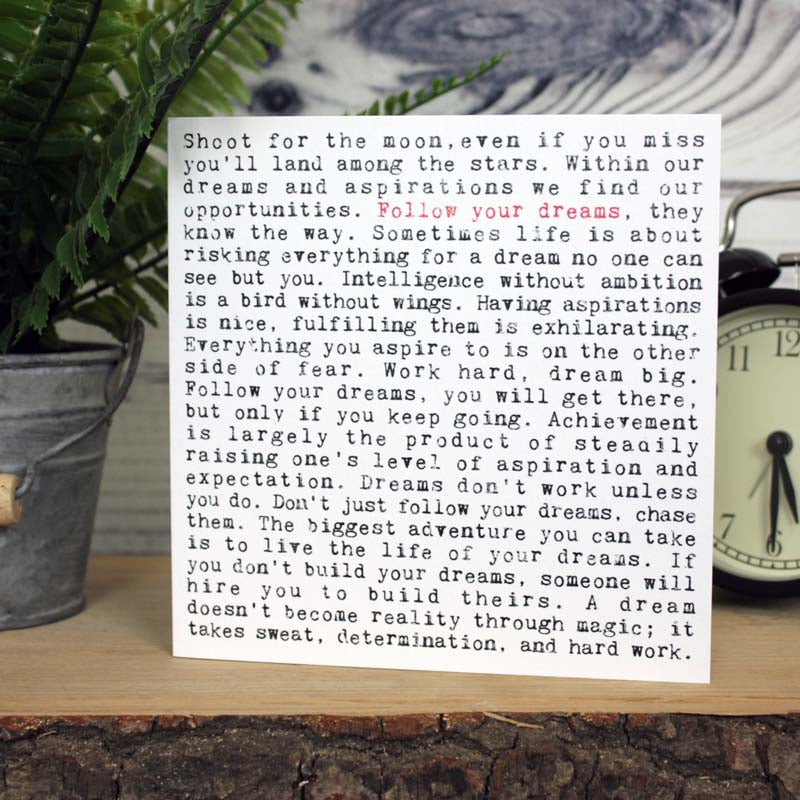 Shoot for the moon,even if you miss
you'll land among the stars. Within our
dreams and aspirations we find our
opportunities. Follow your dreams, they
know the way. Sometimes life is about
risking everything for a dream no one can
see but you. Intelligence without ambition
is a bird without wings. Having aspirations
is nice, fulfilling them is exhilarating.
Everything you aspire to is on the other
side of fear. Work hard, dream big.
Follow your dreams, you will get there,
but only if you keep going. Achievement
is largely the product of steadily
raising one's level of aspiration and
expectation. Dreams don't work unless
you do. Don't just follow your dreams, chase
them. The biggest adventure you can take
is to live the life of your dreams. If
you don't build your dreams, someone will
hire you to build theirs. A dream
doesn't become reality through magic; it
takes sweat, determination, and hard work.
11 12
7 6